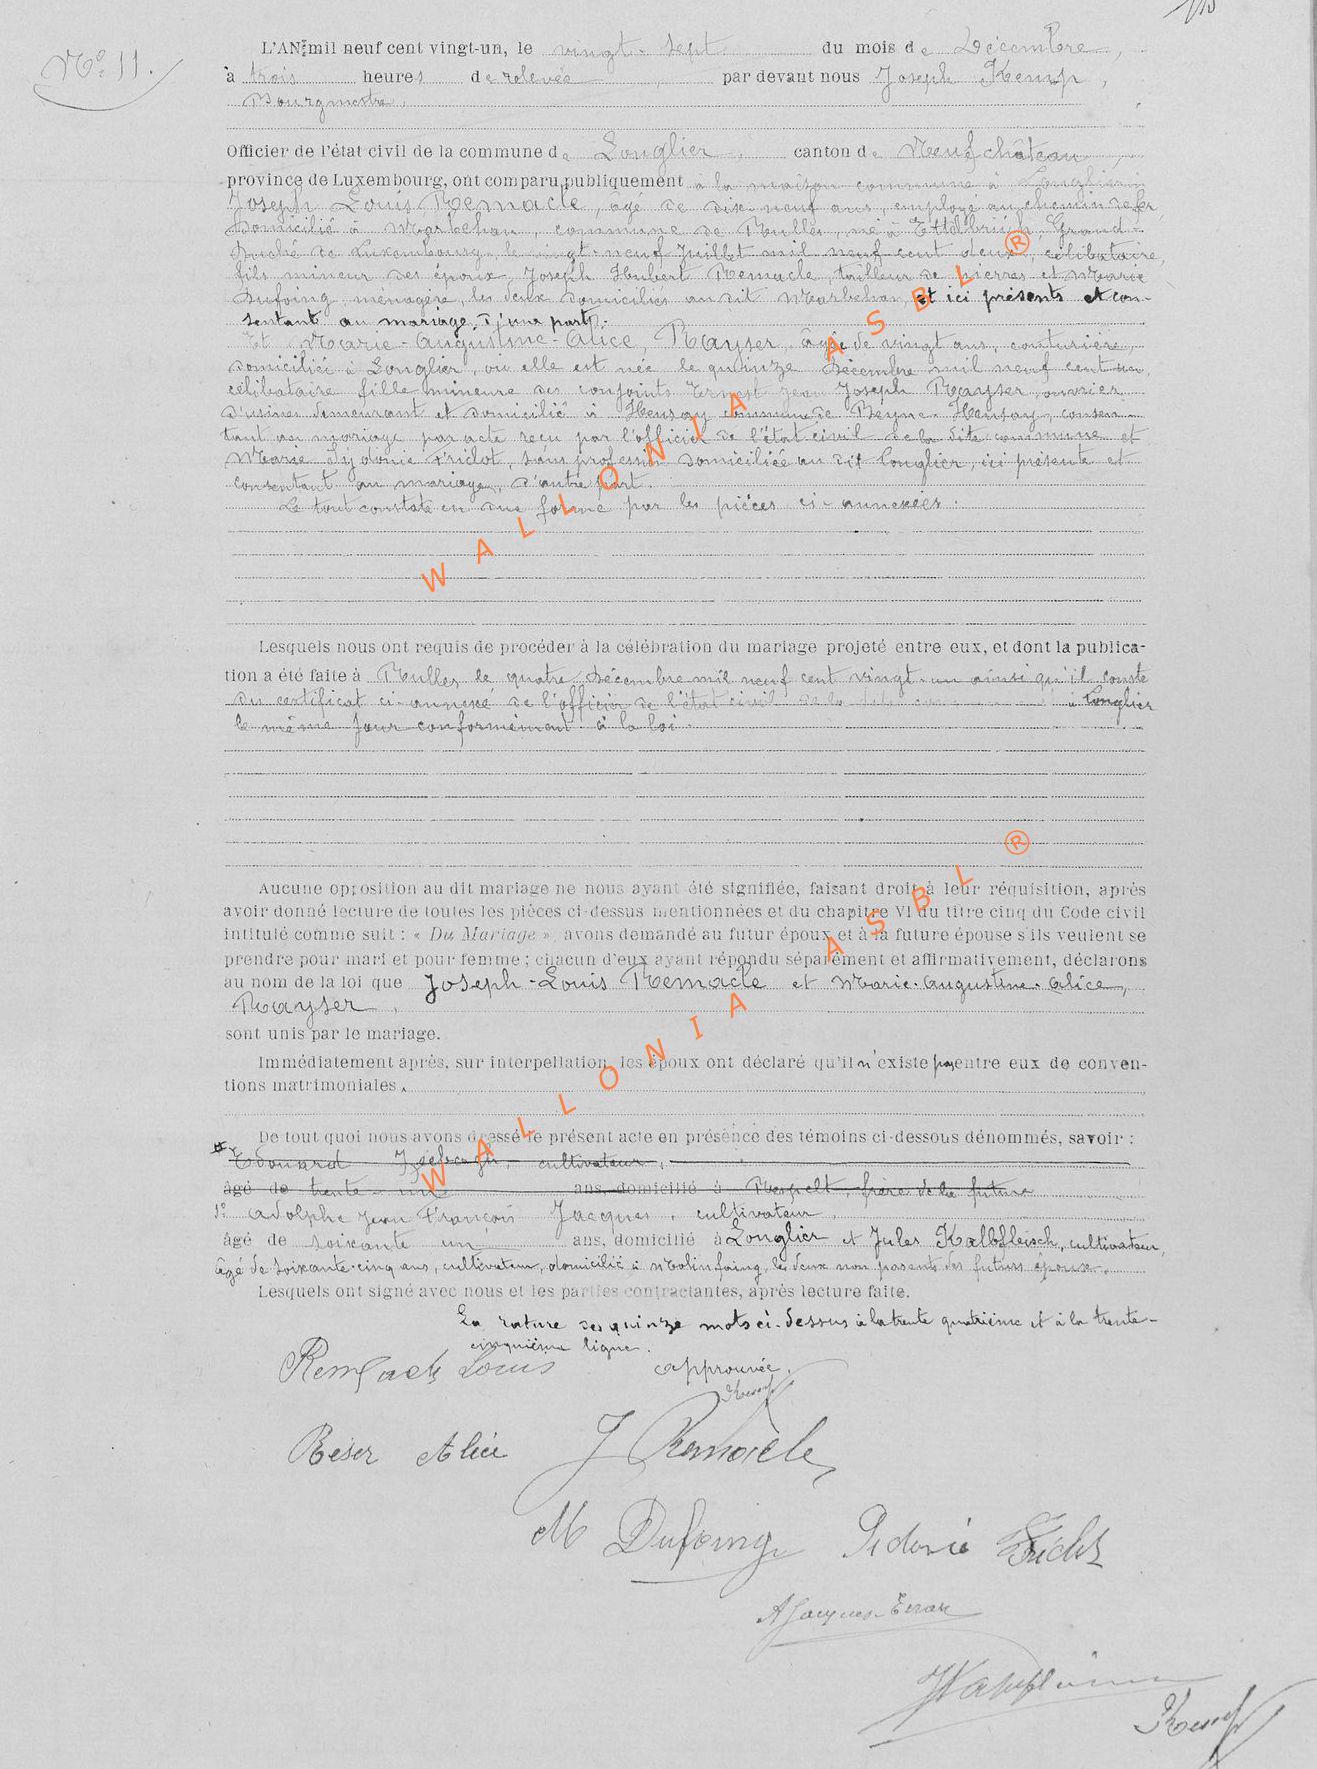 Nº 11.
L'AN mil neuf cent vingt-un, le vingt-sept du mois de Décembre,
à trois heures de relevée, par devant nous Joseph Kemp,
Bourgmestre,
Officier de l'état civil de la commune de Longlier, canton de Neufchâteau,
province de Luxembourg, ont comparu publiquement à la maison commune à Longlier:
Joseph Louis Remacle, âgé de dix-neuf ans, employé au chemin de fer,
domicilié à Marbehan, commune de Rulles, né à Ettelbrück, Grand-
Duché de Luxembourg, le vingt-neuf Juillet mil neuf cent deux, célibataire,
fils mineur des époux Joseph Hubert Remacle, tailleur de pierres et Marie
Dufoing, ménagère, les deux domiciliés au dit Marbehan, et ici présents et con-
sentant au mariage, d'une part.
Et Marie-Augustine-Alice, Rayser, âgée de vingt ans, couturière,
domiciliée à Longlier, où elle est née le quinze Décembre mil neuf cent un,
célibataire fille mineure des conjoints Ernest Jean Joseph Rayser, ouvrier
d'usines demeurant et domicilié à Heusay commune de Beyne-Heusay, consen-
tant au mariage par acte reçu par l'officier de l'état civil de la dite commune et
Marie Sydonie Friclot, sans profession domiciliée au dit Longlier, ici présente et
consentant au mariage, d'autre part.
Le tout constaté en due forme par les pièces ci-annexées.
Lesquels nous ont requis de procéder à la célébration du mariage projeté entre eux, et dont la publica-
tion a été faite à Rulles le quatre Décembre mil neuf cent vingt-un ainsi qu'il conste
du certificat ci-annexé de l'officier de l'état civil de la dite à Longlier
le même jour conformément à la loi.
Aucune opposition au dit mariage ne nous ayant été signifiée, faisant droit à leur réquisition, après
avoir donné lecture de toutes les pièces ci-dessus mentionnées et du chapitre VI du titre cinq du Code civil
intitulé comme suit : « Du Mariage », avons demandé au futur époux et à la future épouse s'ils veulent se
prendre pour mari et pour femme ; chacun d'eux ayant répondu séparément et affirmativement, déclarons
au nom de la loi que Joseph-Louis Remacle et Marie-Augustine-Alice,
Rayser,
sont unis par le mariage.
Immédiatement après, sur interpellation, les époux ont déclaré qu'il n'existe pas entre eux de conven-
tions matrimoniales.
De tout quoi nous avons dressé le présent acte en présence des témoins ci-dessous dénommés, savoir :
Edouard cultivateur,
âgé de trente-un ans, domicilié à Respelt, frère de la future
1º Adolphe Jean François Jacques, cultivateur,
âgé de soixante un ans, domicilié à Longlier et Jules Kalbfleisch, cultivateur,
âgé de soixante-cinq ans, cultivateur, domicilié à Molinfaing, les deux non parents des futurs époux.
Lesquels ont signé avec nous et les parties contractantes, après lecture faite.
La rature des quinze mots ci-dessus à la trente quatrième et à la trente-
cinquième ligne.
approuvée.
Kemp
Remacle Louis
Réser Alice J Remacle
M Dufoing Sidonie Friclot
A Jacques-
Kemp
WALLONIA ASBL ®
WALLONIA ASBL ®